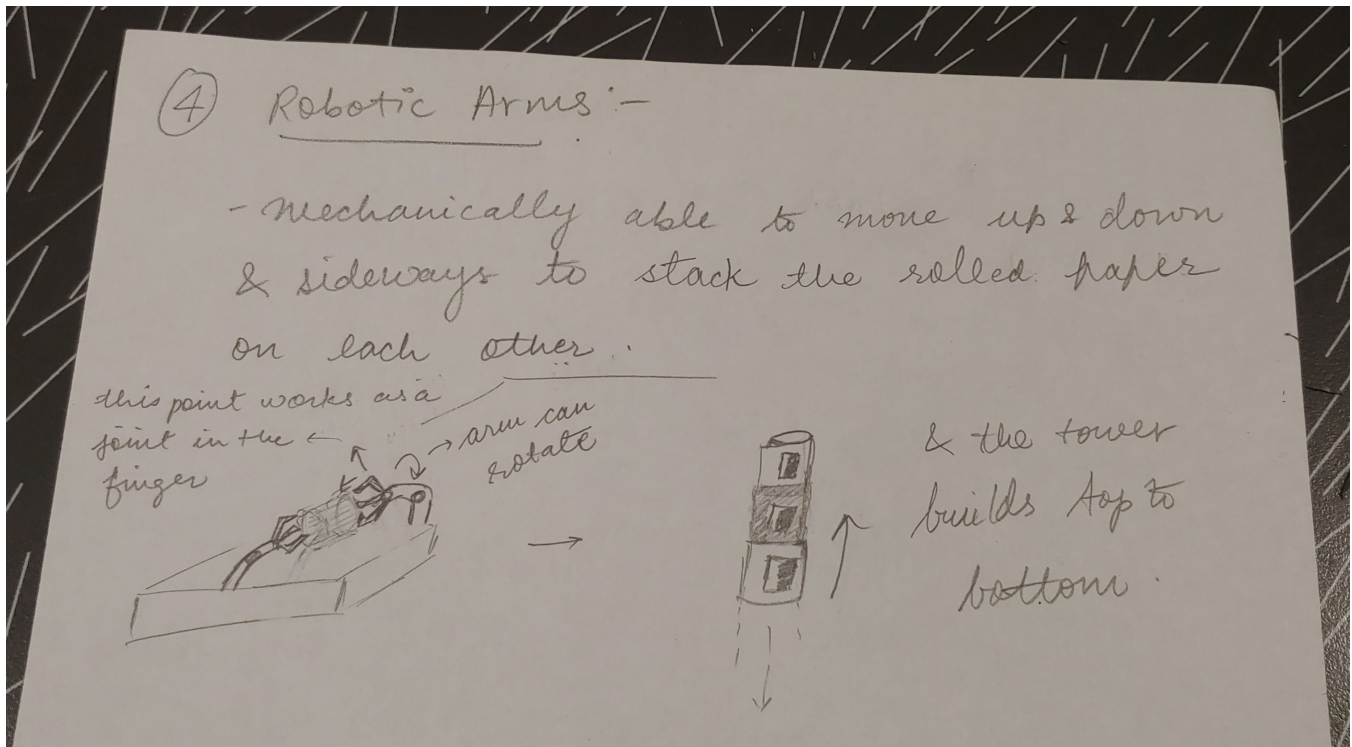 4 Robotic Arms :-
- Mechanically able to move up & down
& sideways to stack the rolled paper
on each other.
this point works as a
joint in the
finger
arm can
rotate
& the tower
builds top to
bottom.